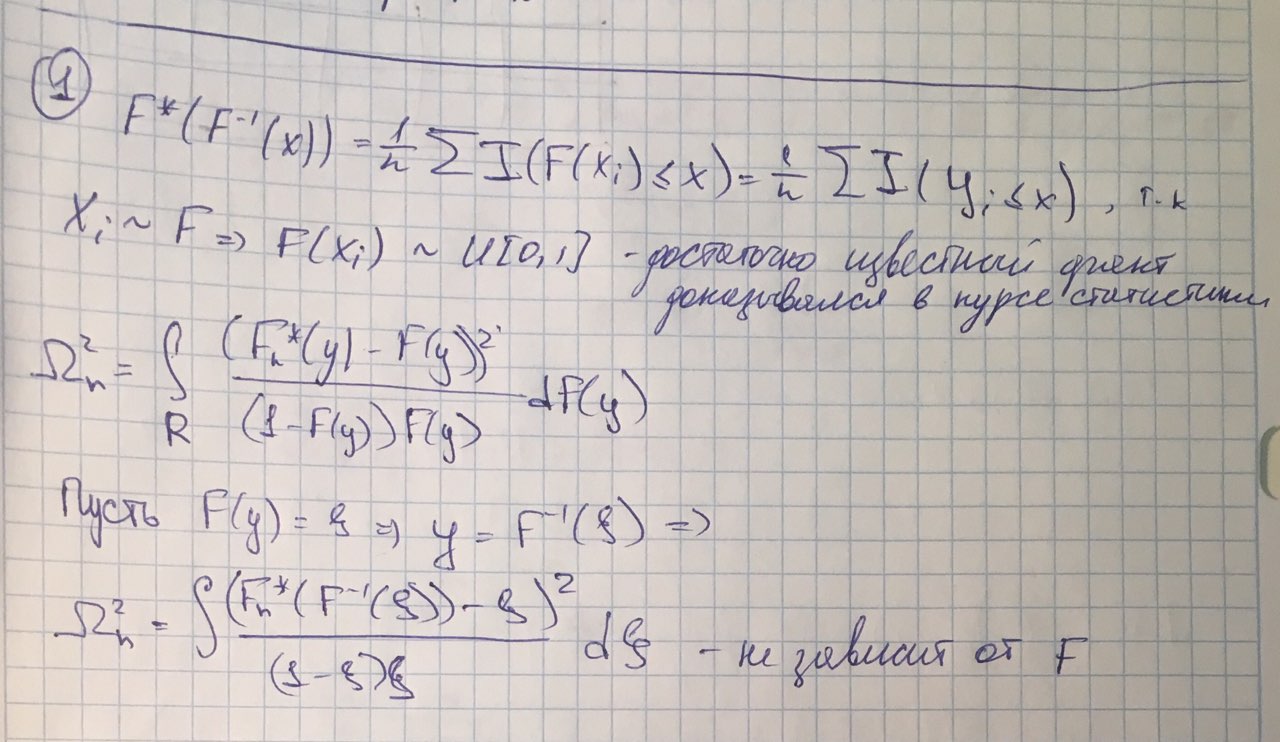 1
F*(F⁻¹(x)) = 1/n Σ I(F(x_i) ≤ x) = 1/n Σ I(y_i ≤ x), т.к
X_i ~ F ⇒ F(x_i) ~ U[0,1] - достаточно известный факт
доказывался в курсе статистики
Ω²_n = ∫_R (F_n*(y) - F(y))² / (1-F(y))F(y) dF(y)
Пусть F(y) = ξ ⇒ y = F⁻¹(ξ) ⇒
Ω²_n = ∫ (F_n*(F⁻¹(ξ)) - ξ)² / (1-ξ)ξ dξ - не зависит от F